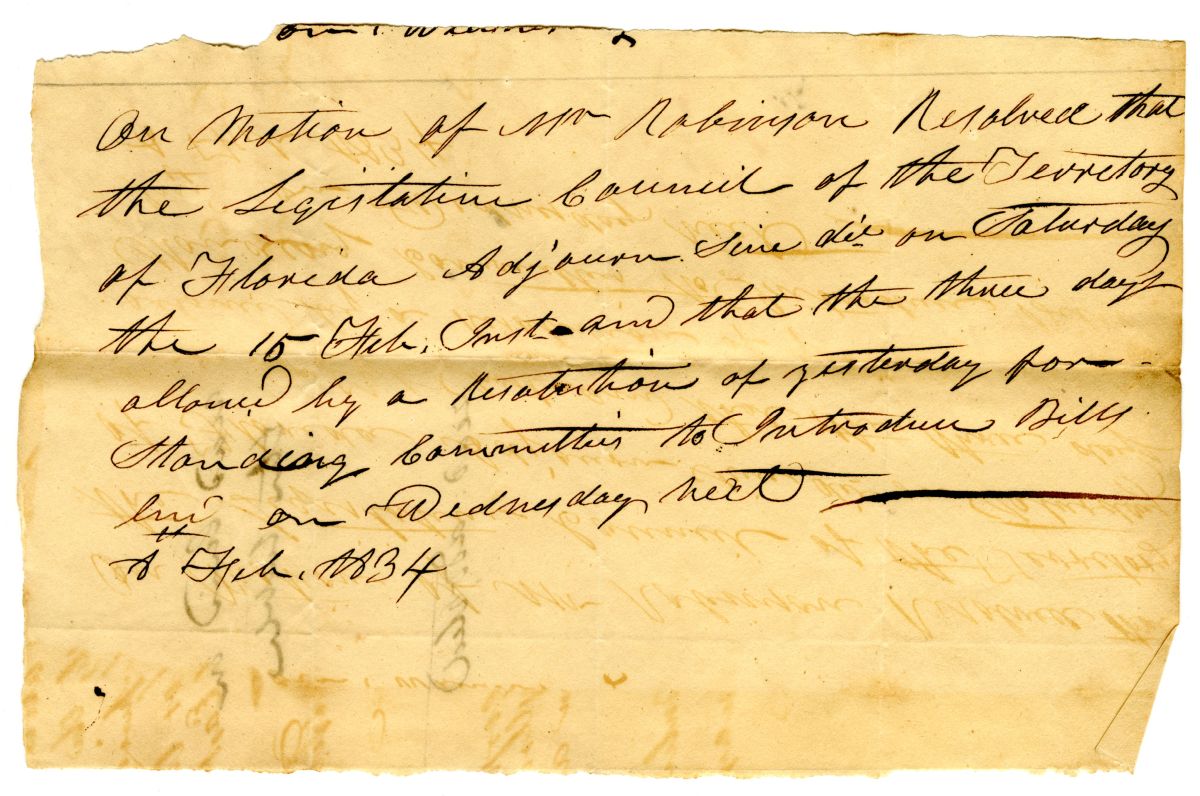 On Motion of Mr Robinson Resolved that
the Legislative Council of the Terretory
of Florida Adjourn Sine die on Saturday
the 15 Feb. Inst. and that the three days
allowed by a Resolution of yesterday for
Standing Committies to Introduce Bills
on Wednesday next
8 Feb. 1834